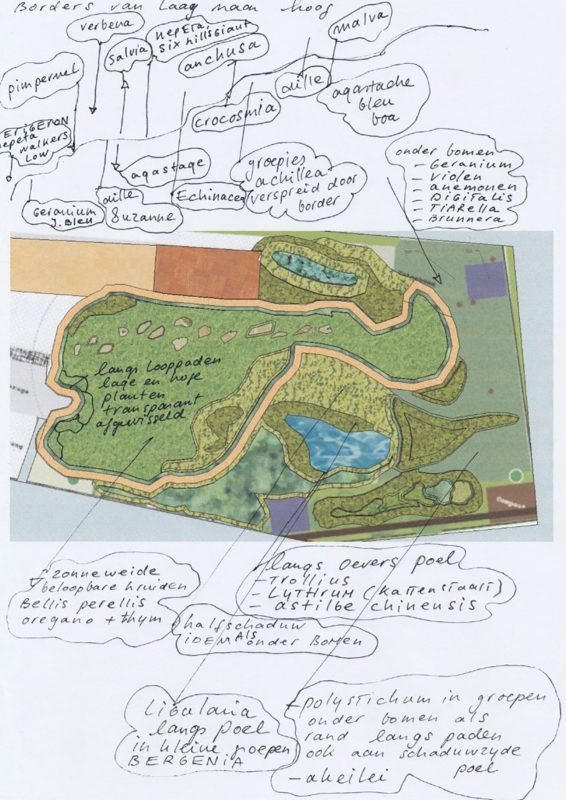 Borders van laag naar hoog
verbena
nepeta,
six hillsgiant
malva
salvia
anchusa
pimpernel
aille
agastache
bleu
boa
crocosmia
ERIGERON
nepeta
walkers
low
onder bomen
- Geranium
- violen
- anemonen
- DIGITALIS
- TIARella
- Brunnera
agastage
groepjes
achillea
verspreid door
border
Echinacea
aille
Suzanne
Geranium
J. Bleu
langs looppaden
lage en hoge
planten
transparant
afgewisseld
zonneweide
beloopbare kruiden
Bellis perellis
oregano + thym
langs oevers poel
- Trollius
- LYTHRUM (kattenstaart)
- astilbe chinensis
halfschaduw
iDEM ALS onder Bomen
Ligularia
langs poel
in kleine groepen
BERGENIA
- polystichum in groepen
onder bomen als
rand langs paden
ook aan schaduwzyde
poel
- akeilei